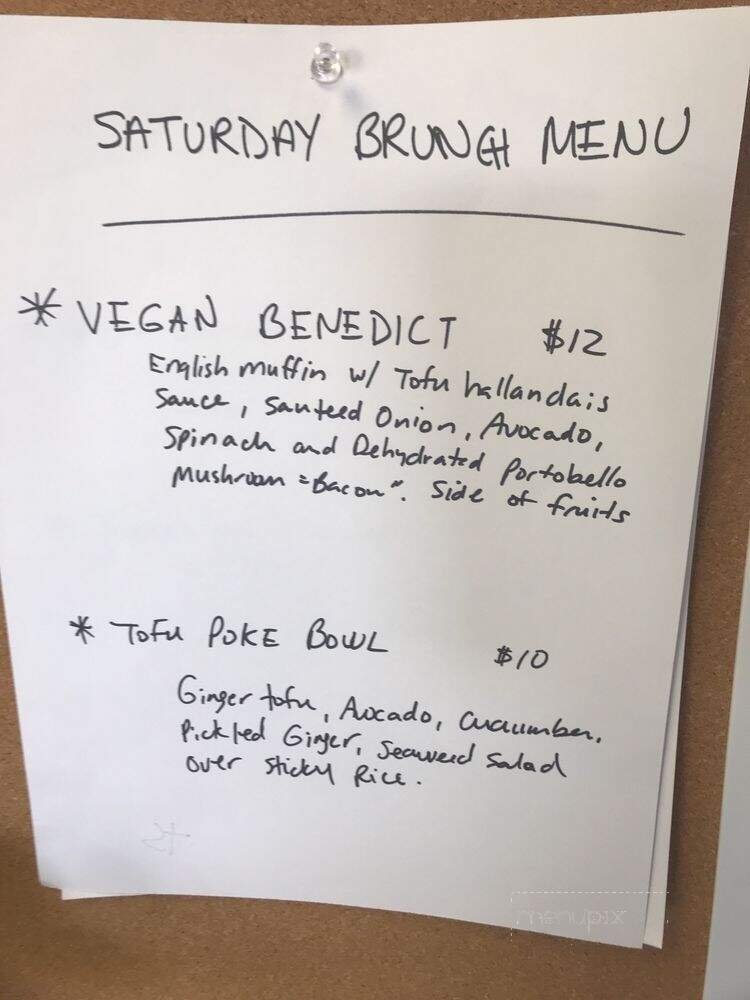 SATURDAY BRUNCH MENU
* VEGAN BENEDICT $12
English muffin w/ Tofu hallandais
Sauce, Sauteed Onion, Avocado,
Spinach and Dehydrated Portobello
Mushroom "Bacon". Side of fruits
* TOFU POKE BOWL $10
Ginger tofu, Avocado, Cucumber,
Pickled Ginger, Seaweed Salad
over sticky Rice.
menupix